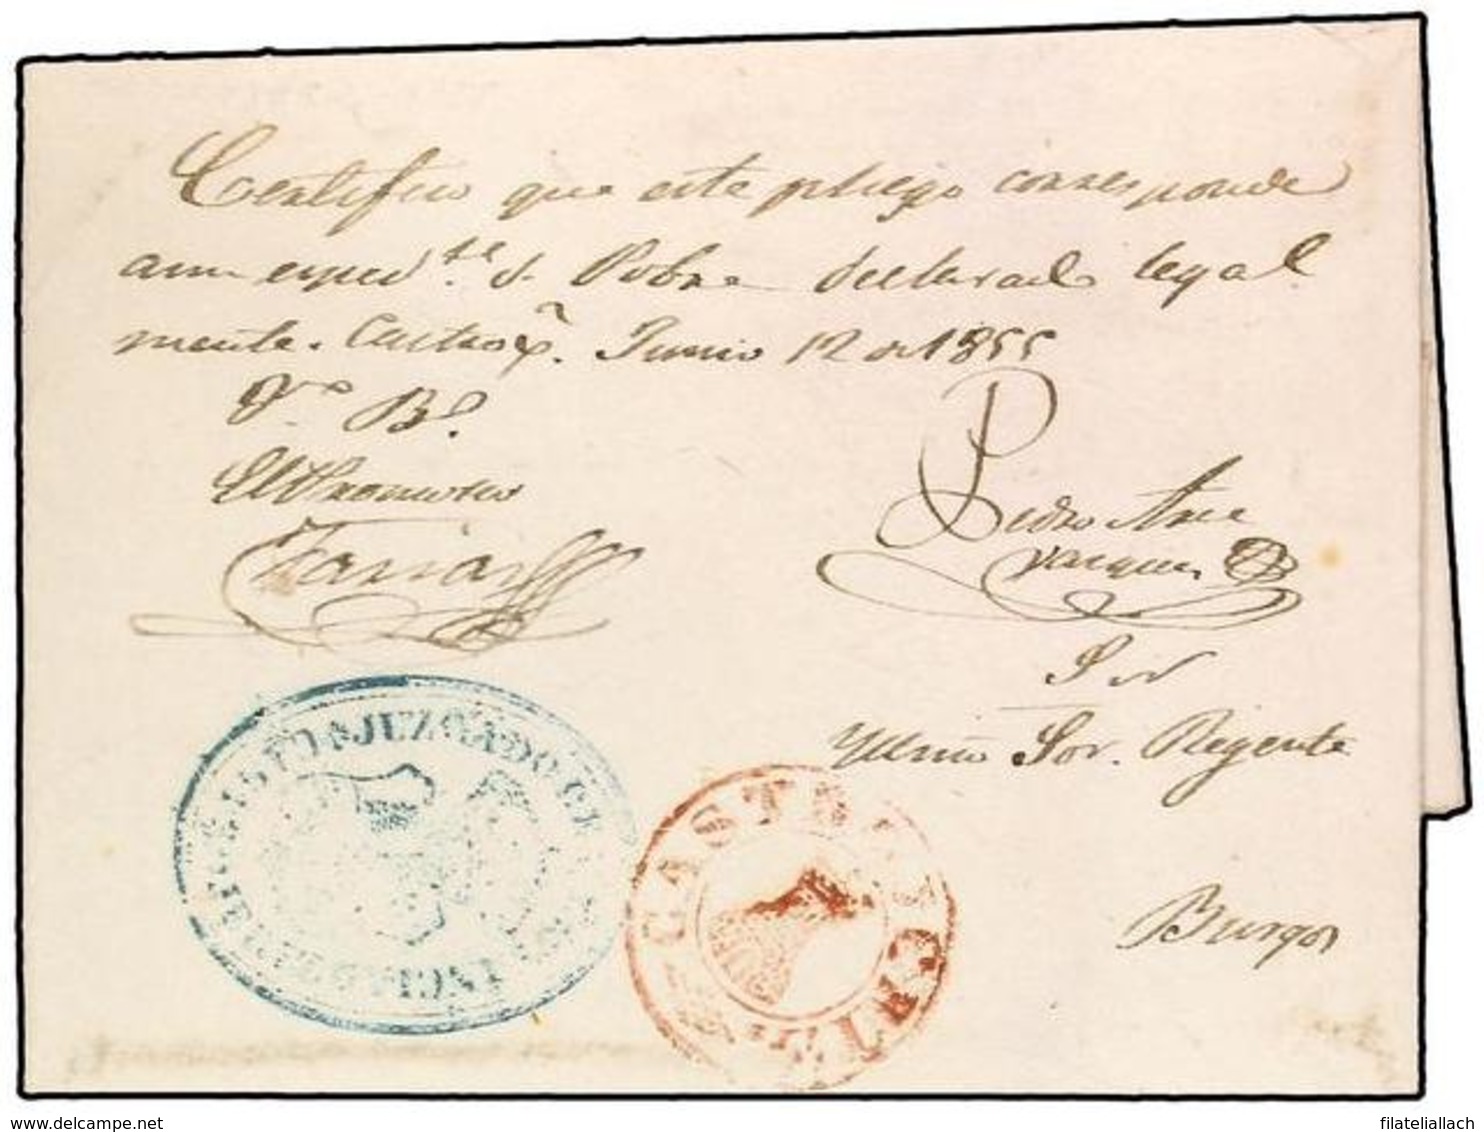 Certifico que este pliego corresponde
a un exped.te d. Pobre declarado legal
mente. Castrox.ª Junio 12 de 1855
V.o B.o
El Promotor
Farias
Pedro Arce
Vazquez
S or
Yllmo Sor. Regente
Burgos
JUZGADO DE
CASTR
www.delcampe.net
filateliallach